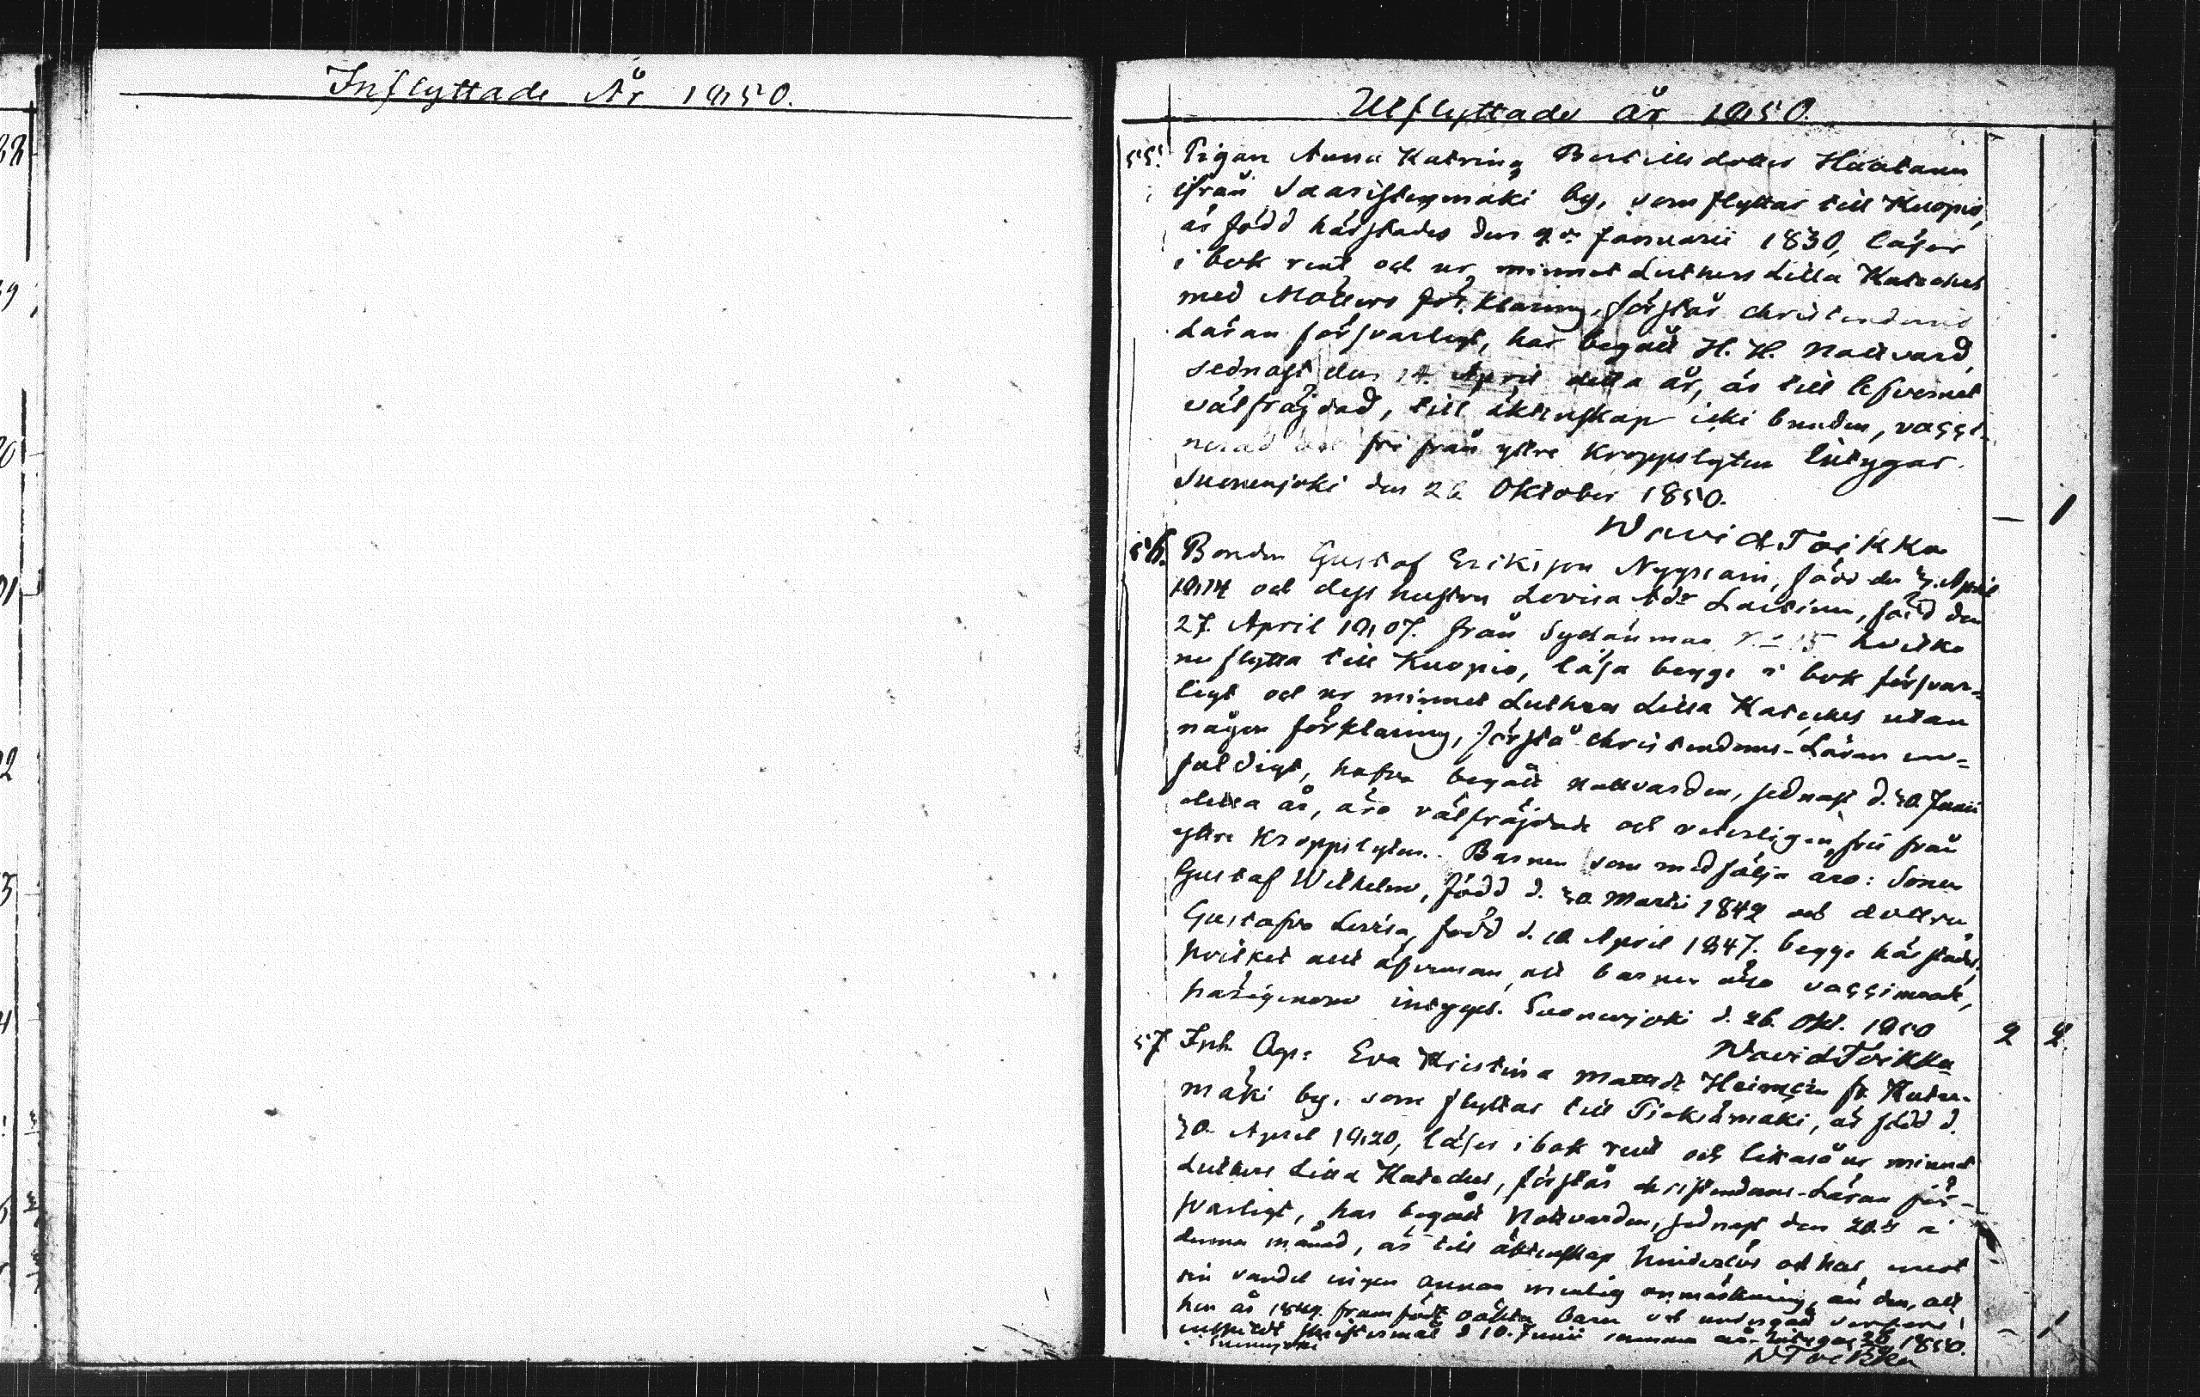 Inflyttade År 1850.
Utflyttade år 1850.
55. Pigan Anna Katrina Bertilsdotter Haatain
ifrån Saaristenmäki by, som flyttar till Kuopio,
är född härstädes den Januarii 1830, läser
i bok rent och ur minnet Luthers Lilla Kateches
med Möllers förklaring, förstår christendoms
Läran försvarligt, har begått H. H. Nattvard
sednast den 14 April detta år, är till lefvernet
välfräjdad, till äktenskap icke bunden, vacci-
nerad och fri från yttre Kroppslyten Intygar.
Suonenjoki den 26 Oktober 1850.
— 1
David Toikka
56. Bonden Gustaf Eriksson Nyyssöin, född den 3. April
1814 och dess hustru Lovisa Laitinen, född den
27. April 1807. från Sydänmaa 15 hvilka
nu flytta till Kuopio, läsa begge i bok försvar=
ligt och ur minnet Luthers Lilla Kateches utan
någon förklaring, förstå christendoms-Läran en=
faldigt, hafva begått nattvarden, sednast d. 30. Junii
detta år, äro välfräjdade och veterligen fri från
yttre Kroppslyten. Barnen som medfölja äro: Sonen
Gustaf Wilhelm, född d. 30. Martii 1842 och dottren
Gustafva Lovisa, född d. 10 April 1847. begge härstädes,
hvilket allt äfvensom, att barnen äro vaccinerade,
härigenom intygas. Suonenjoki d. 26. Okt. 1850
2 2.
David Toikka
57 Inh. Eva Kristina Heimoin fr.
mäki by, som flyttar till Pieksämäki, är född d.
30. April 1820, läser i bok rent och likaså ur minnet
Luthers Lilla Kateches, förstår christendoms-Läran för-
svarligt, har begått Nattvarden, sednast den 20. i
denna månad, är till äktenskap hinderlös och har emot
sin vandel ingen annan menlig anmärkning, än den, att
hon år 1849. framfödt oäkta barn och undergått
enskildt skriftermål d 10. Junii samma år. Intygas 26 1850.
Suonenjoki
— 1
D Toikka